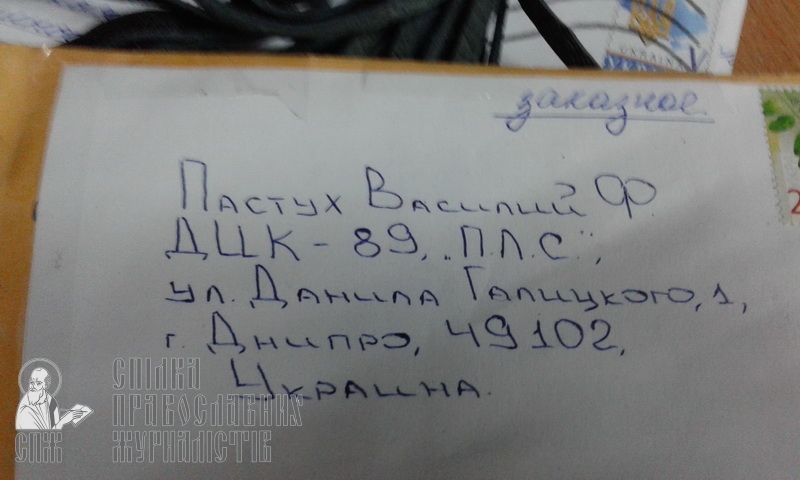 УКРАЇНА
заказное.
Пастух Василий Ф.
ДЦК - 89, „П.Л.С.",
ул. Данила Галицкого, 1,
г. Днипро, 49102,
Украина.
СПІЛКА
ПРАВОСЛАВНИХ
СПЖ ЖУРНАЛІСТІВ
2